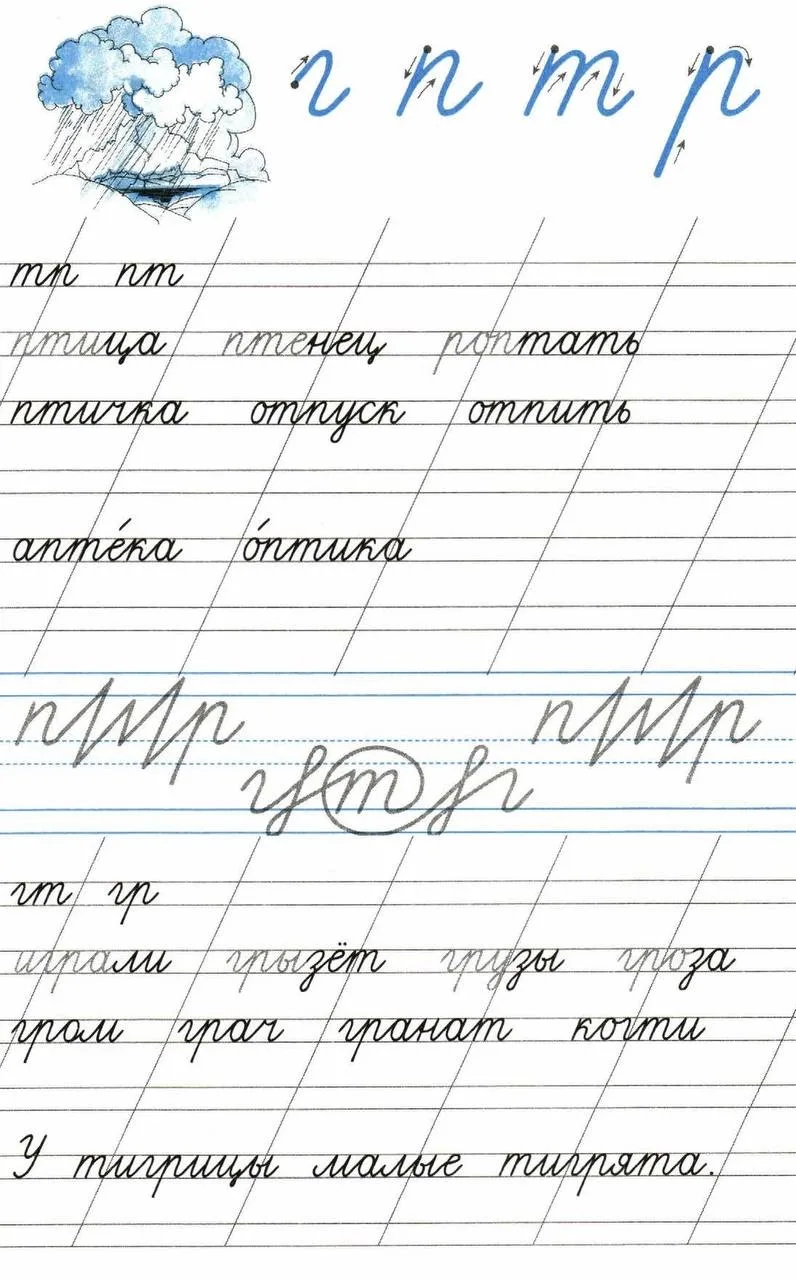 г п т р
тп пт
птица птенец роптать
птичка отпуск отпить
апте́ка о́птика
п р п р
г т г
гт гр
играли грызёт грузы гроза
гром грач гранат когти
У тигрицы малые тигрята.